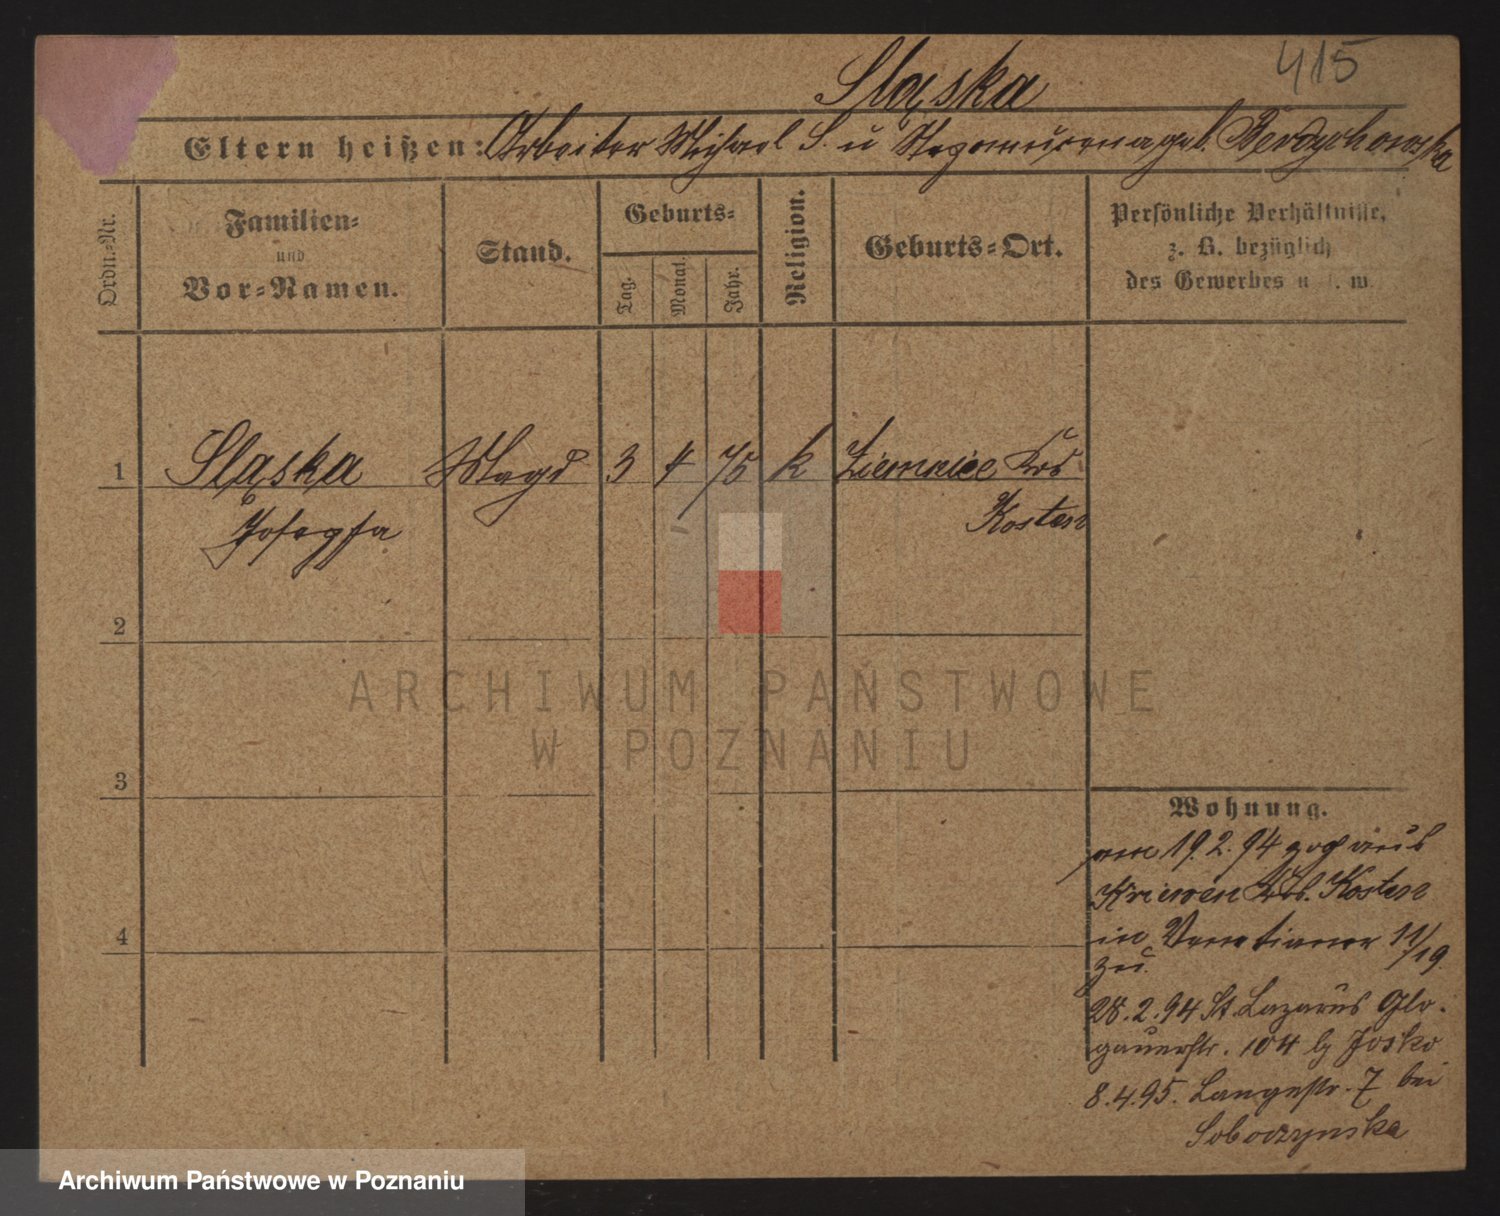 415
Sląska
Eltern heißen: Arbeiter Michael S. u geb. Berdychowska
Ordn.-Nr.
Familien-
und
Vor-Namen.
Stand.
Geburts-
Tag.
Monat.
Jahr.
Religion.
Geburts-Ort.
Persönliche Verhältnisse,
z. B. bezüglich
des Gewerbes u. s. w.
1 Sląska Magd 3 4 75 k Ziemnice Krs
Josepfa Kosten
2
3
4
Wohnung.
am 19.2.94 zog aus
Kriewen Krs. Kosten
in Venetianer 11/19
zu.
28.2.94 St. Lazarus Glo-
gauerstr. 104 b Josko
8.4.95. Langestr. 7 bei
Soboczynska
ARCHIWUM PAŃSTWOWE
W POZNANIU
Archiwum Państwowe w Poznaniu